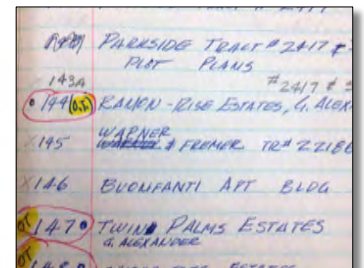 PARKSIDE TRACT # 2417 &
PLOT PLANS
143A
#2417 &
144 O.T. RAMON-RISE ESTATES, G. ALEX
145 WARNER & FREMER TR# 2218
146 BUONFANTI APT BLDG
OT 147 TWIN PALMS ESTATES
G. ALEXANDER
OT